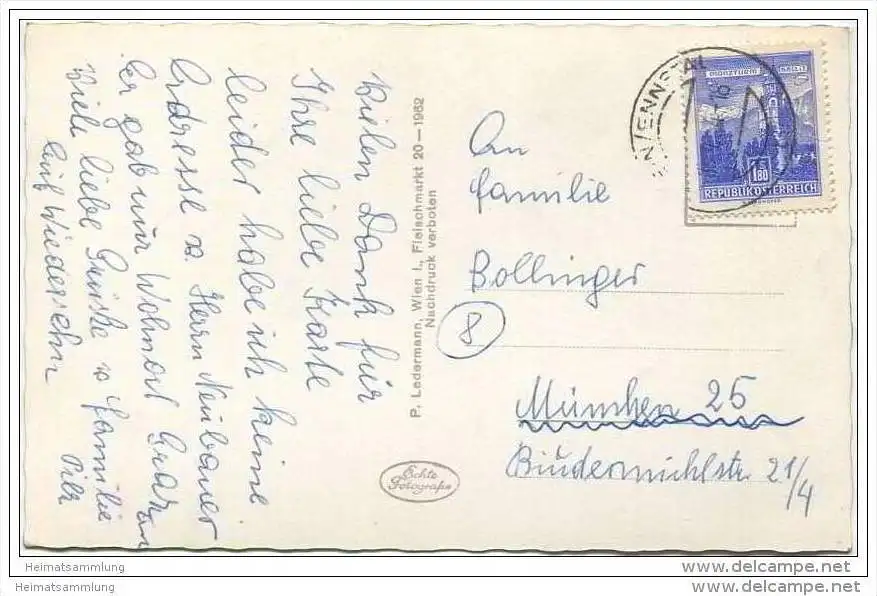 Vielen Dank für
Ihre liebe Karte
leider habe ich keine
Adresse v. Herrn Neubauer
Er gab nur Wohnort Graz an
Viele liebe Grüße v Familie
Pilz
Auf Wiedersehn
P. Ledermann, Wien I., Fleischmarkt 20—1962
Nachdruck verboten
Echte
Fotografie
ENNSTAL
MÜNZTURM
1.80
REPUBLIK ÖSTERREICH
An
Familie
Bollinger
8
München 25
21/4
Heimatsammlung
Heimatsammlung
www.delcampe.net
www.delcampe.net